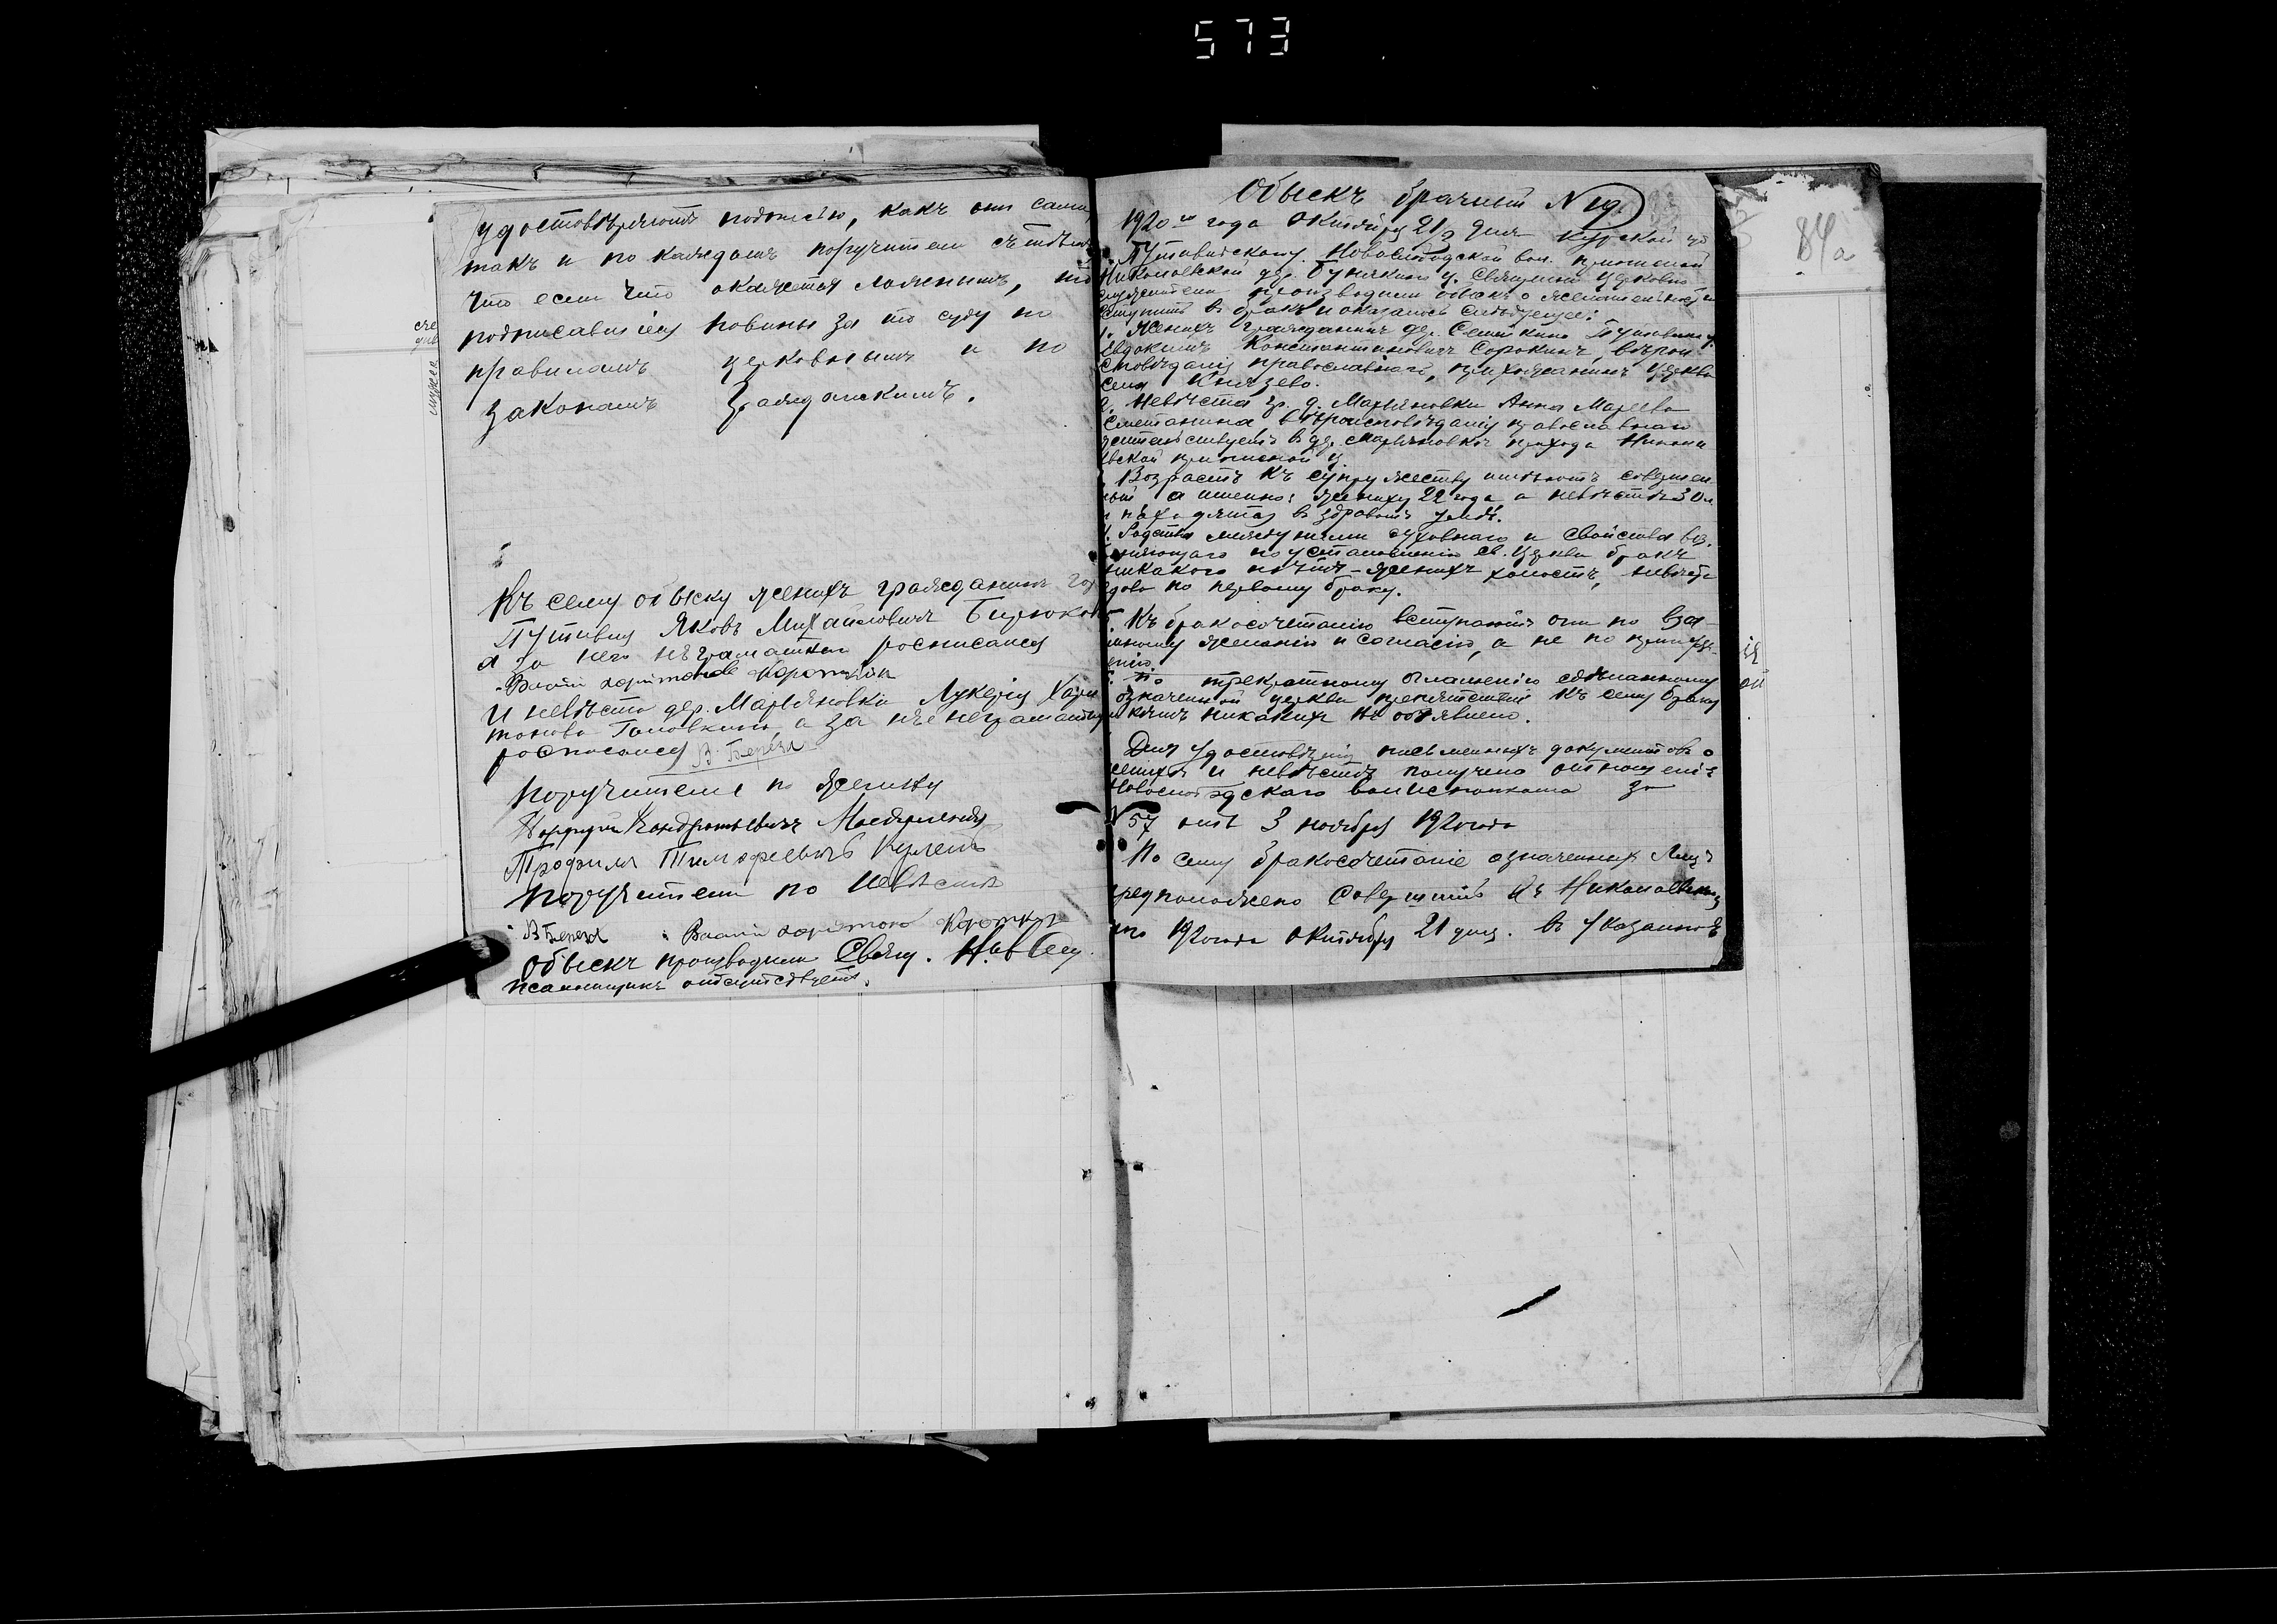 573
удостовѣряютъ подписью, какъ они сами,
такъ и по каждомъ поручители съ тѣмъ
что если что окажется ложнымъ, то
подписавшіеся повины за то суду по
правиламъ церковнымъ и по
законамъ гражданскимъ.
Къ сему обыску женихъ гражданинъ гор
Путивля Яковъ Михайловичъ Бирюков
а за него неграматнаго росписался
Харитонов Коротких
И невѣста дер. Марьяновки Лукерія Хари
тонова Головкина, а за нее неграматную
росписался В. Берёза
Поручители по жениху
Кондратьевичъ
Трофимъ Тимофеевичъ
Поручители по Невѣсте
В Берёза
Обыскъ производили Свящ.
псаломщикъ отсутствуетъ.
84а
Обыскъ брачный N 19.
1920 го года Октября 21 дня Курской
Путивльскому. Новослободской вол. приписной
Николаевской дер. Бунякино у. Священно церковно
служители производили обыскъ о желающихъ
вступить въ бракъ и оказалось слѣдующее:
1. Женихъ гражданинъ дер. Семёнкино Путивльск. у.
Евдокимъ Константиновичъ Сорокинъ, вѣрои
сповѣданія православнаго, прихожанинъ церкви
села Князево.
2. Невѣста гр. д. Марьяновки Анна
Сметанина вѣроисповѣданія православнаго
жительствуетъ въ дер. Марьяновкѣ прихода Никола
евской приписной ц.
Возрастъ къ супружеству имѣютъ совершен
ный а именно: жениху 22 года а невѣстѣ 30 л
и находятся въ здравомъ умѣ.
4. Родства между ними духовнаго и свойства воз
браняющаго по установленію св. Церкви бракъ
никакого нѣтъ - женихъ холостъ, невѣста
вдова по первому браку.
5. Къ бракосочетанію вступаютъ они по вза-
имному желанію и согласію, а не по принужд-
енію.
По троекратному оглашенію сдѣланному
означенной церкви препятствій къ сему браку
никѣмъ никакихъ не объявлено.
Для удостовѣренія письменныхъ документовъ о
женихѣ и невѣстѣ получено отношеніе
Новослободскаго волисполкома за
N 57 отъ 3 ноября 1920 года
По сему бракосочетаніе означенныхъ лицъ
предположено совершить въ Николаевской
1920 года Октября 21 дня. въ указанное